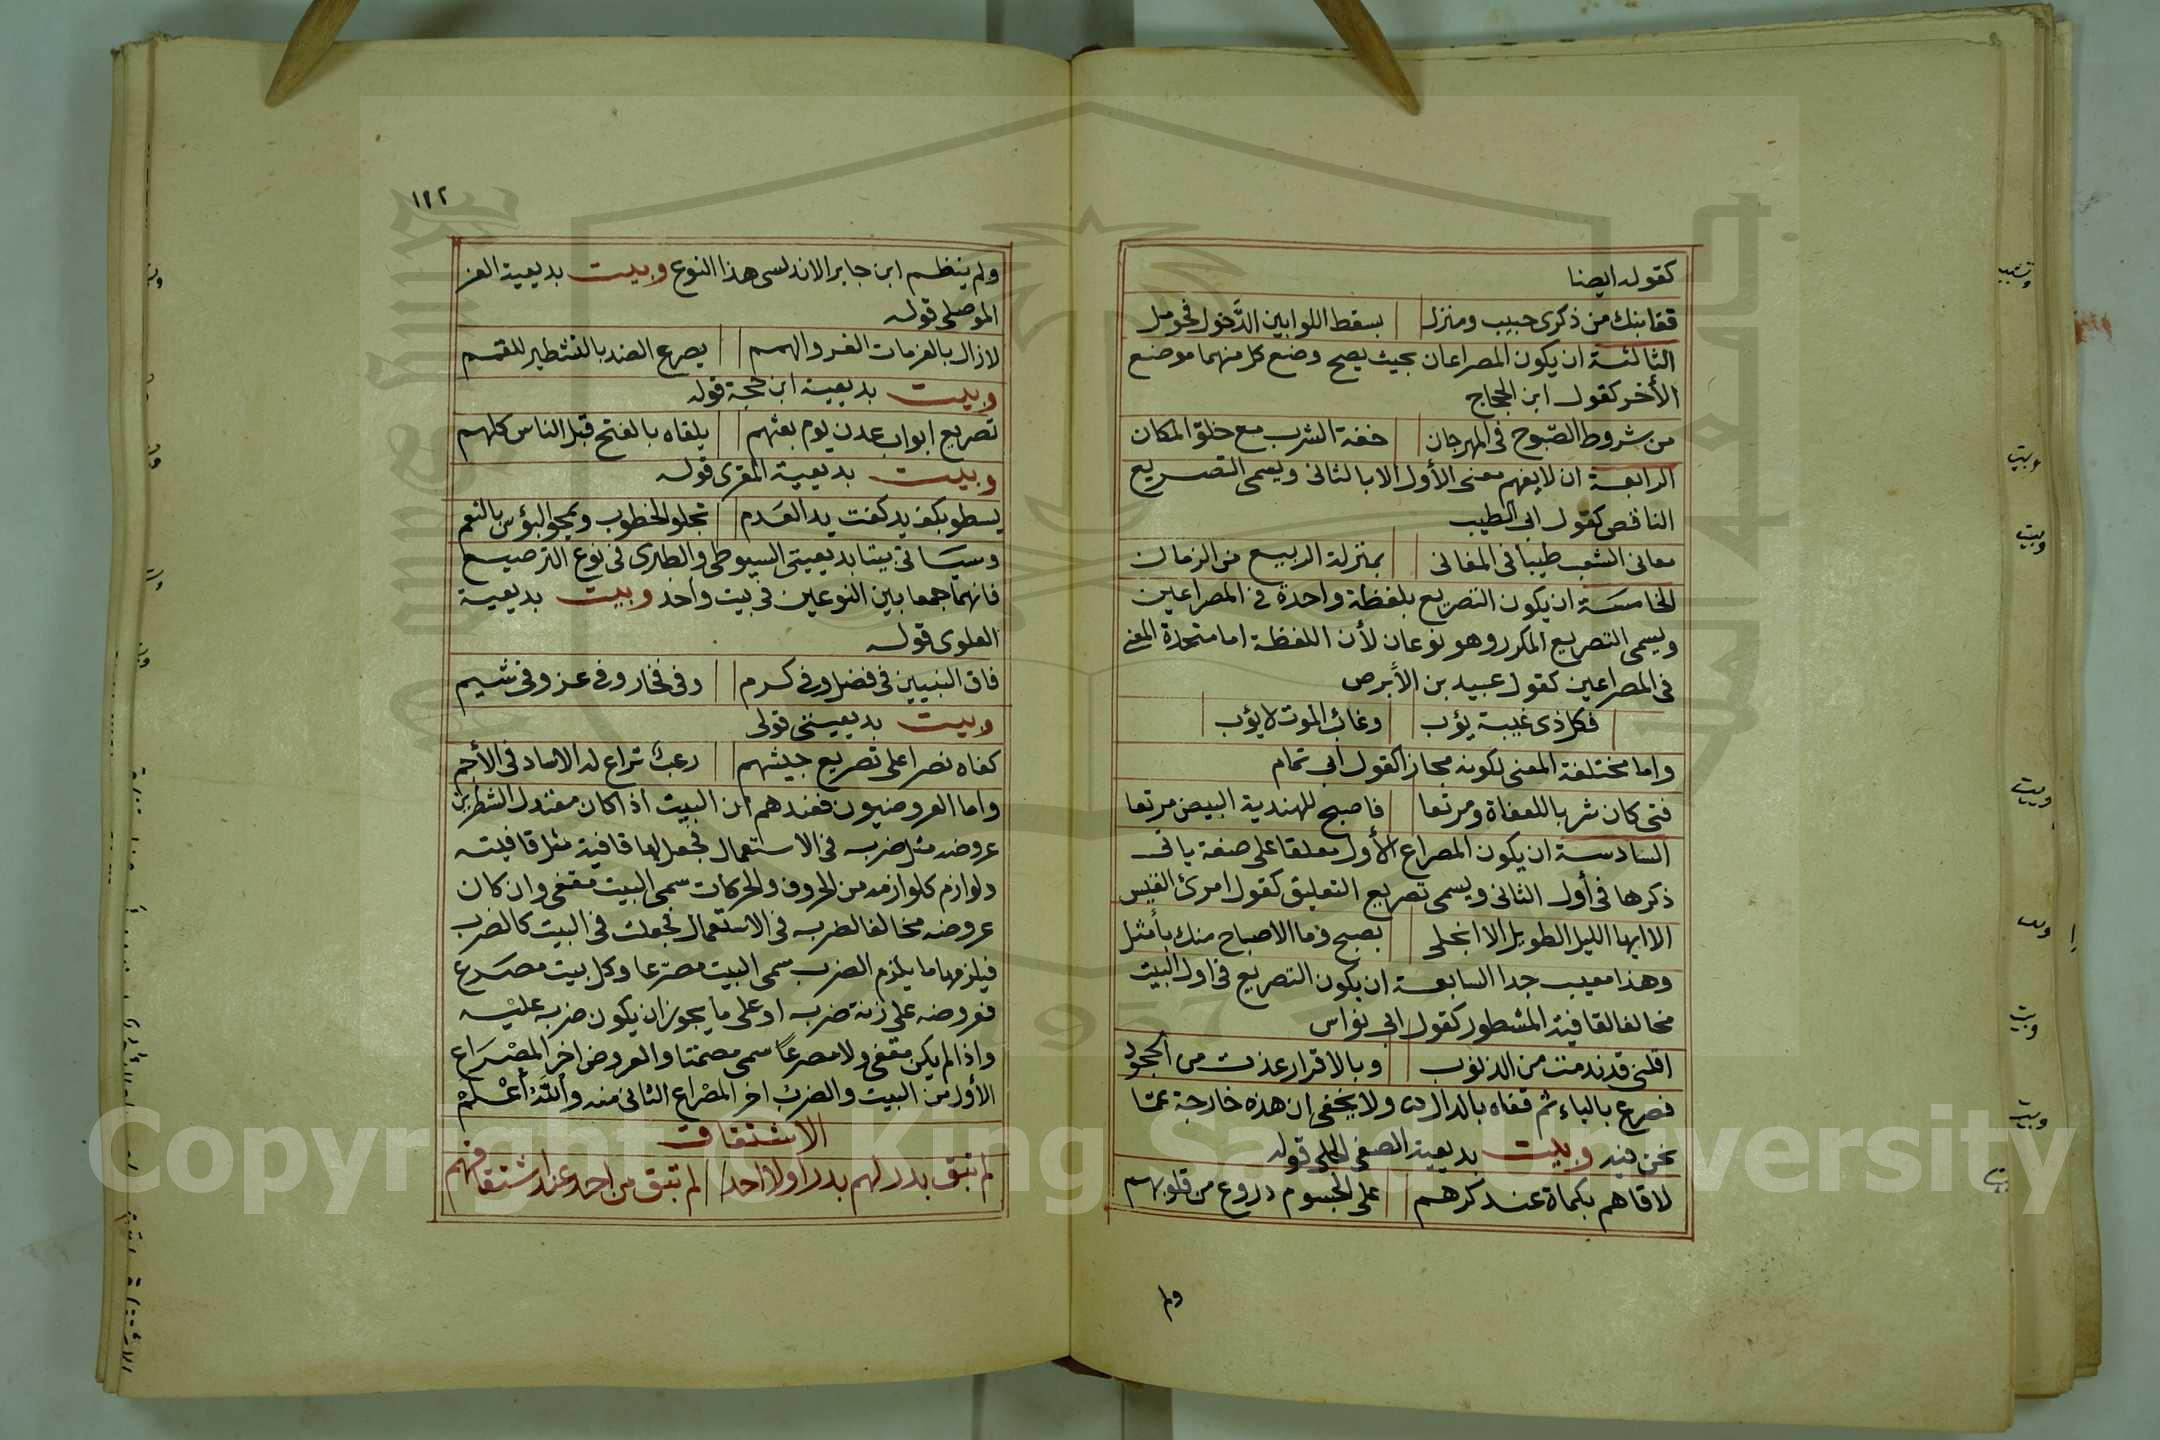 كقوله ايضا
قفا نبك من ذكرى حبيب ومنزل بسقط اللوا بين الدَّخول فحومل
الثالثة ان يكون المصراعان بحيث يصح وضع كل منهما موضع
الأخر كقول ابن الحجاج
من شروط الصّبوح في المهرجان خفة الشرب مع خلو المكان
الرابعة ان لا يفهم معنى الأول الا بالثاني ويسمى التصريع
الناقص كقول ابي الطيب
مغاني الشعب طيبا في المغاني بمنزلة الربيع من الزمان
الخامسة ان يكون التصريع بلفظة واحدة في المصراعين
ويسمى التصريع المكرر وهو نوعان لأن اللفظة اما متحدة المعنى
في المصراعين كقول عبيد بن الأبرص
فكل ذى غيبة يؤب وغائب الموت لا يؤب
واما مختلفة المعنى لكونه مجازا كقول ابي تمام
فتى كان شربا للعفاة ومرتعا فاصبح للهندية البيض مرتعا
السادسة ان يكون المصراع الأول معلقا على صفة ياتى
ذكرها في أول الثاني ويسمى تصريع التعليق كقول امرئ القيس
الا ايها الليل الطويل الا انجلى بصبح وما الاصباح منك بأمثل
وهذا معيب جدا السابعة ان يكون التصريع في اول البيت
مخالفا لقافية المشطور كقول ابي نواس
اقلنى قد ندمت من الذنوب وبالاقرار عذت من الجحود
فصرع بالباء ثم قفاه بالدال ولا يخفى ان هذه خارجة عمّا
نحن فيه وبيت بديعية الصفى الحلى قوله
لاقاهم بكماة عند كرهم على الجسوم دروع من قلوبهم
ولم
١١٢
ولم ينظم ابن جابر الاندلسى هذا النوع وبيت بديعية العز
الموصلى قوله
لا زال بالعزمات الغر والهمم يصرع الضد بالتشطير للقمم
وبيت بديعية ابن حجة قوله
تصريع ابواب عدن يوم بعثهم يلقاه بالفتح قبل الناس كلهم
وبيت بديعية المقرى قوله
يسطو بكف يد كفت يد العَدم تجلو الخطوب ويمحو البؤس بالنعم
وسيَاتى بيتا بديعيتى السيوطى والطبرى في نوع الترصيع
فانهما جمعا بين النوعين في بيت واحد وبيت بديعية
العلوى قوله
فاق النبيين في فضل وفي كرم وفي فخار وفي عز وفي شيم
وبيت بديعيتى قولى
كفاه نصرا على تصريع جيشهم رعب تراع له الاساد في الأجم
واما العروضيون فعندهم ان البيت اذا كان معتدل الشطرين
عروضه مثل ضربه في الاستعمال فجعل لها قافية مثل قافيته
ولوازم كلوازمه من الحروف والحركات سمى البيت مقفى وان كان
عروضه مخالفا لضربه في الاستعمال فجعلت في البيت كالضرب
فيلزمها ما يلزم الضرب سمى البيت مصرّعا وكل بيت مصَرع
فعروضه على زنة ضربه او على ما يجوز ان يكون ضربه عليه
واذا لم يكن مقفى ولا مصرعاً سمى مصمتا والعروض اخر المصْرَاع
الأول من البيت والضرب اخر المصْراع الثانى منه واللّه أعْلمْ
الاشتقاق
لم تبق بدر لهم بدرا ولا احد لم تبق من احد عند اشتقاقهم
Copyright © King Saud University